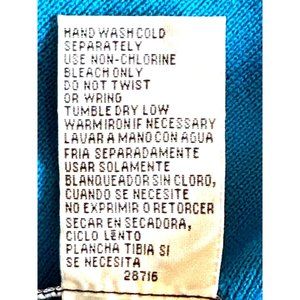 HAND WASH COLD
SEPARATELY
USE NON-CHLORINE
BLEACH ONLY
DO NOT TWIST
OR WRING
TUMBLE DRY LOW
WARM IRON IF NECESSARY
LAVAR A MANO CON AGUA
FRIA SEPARADAMENTE
USAR SOLAMENTE
BLANQUEADOR SIN CLORO,
CUANDO SE NECESITE
NO EXPRIMIR O RETORCER
SECAR EN SECADORA,
CICLO LENTO
PLANCHA TIBIA SI
SE NECESITA
28716